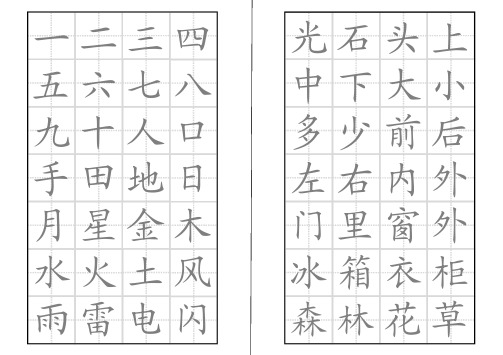 一二三四
五六七八
九十人口
手田地日
月星金木
水火土风
雨雷电闪
光石头上
中下大小
多少前后
左右内外
门里窗外
冰箱衣柜
森林花草